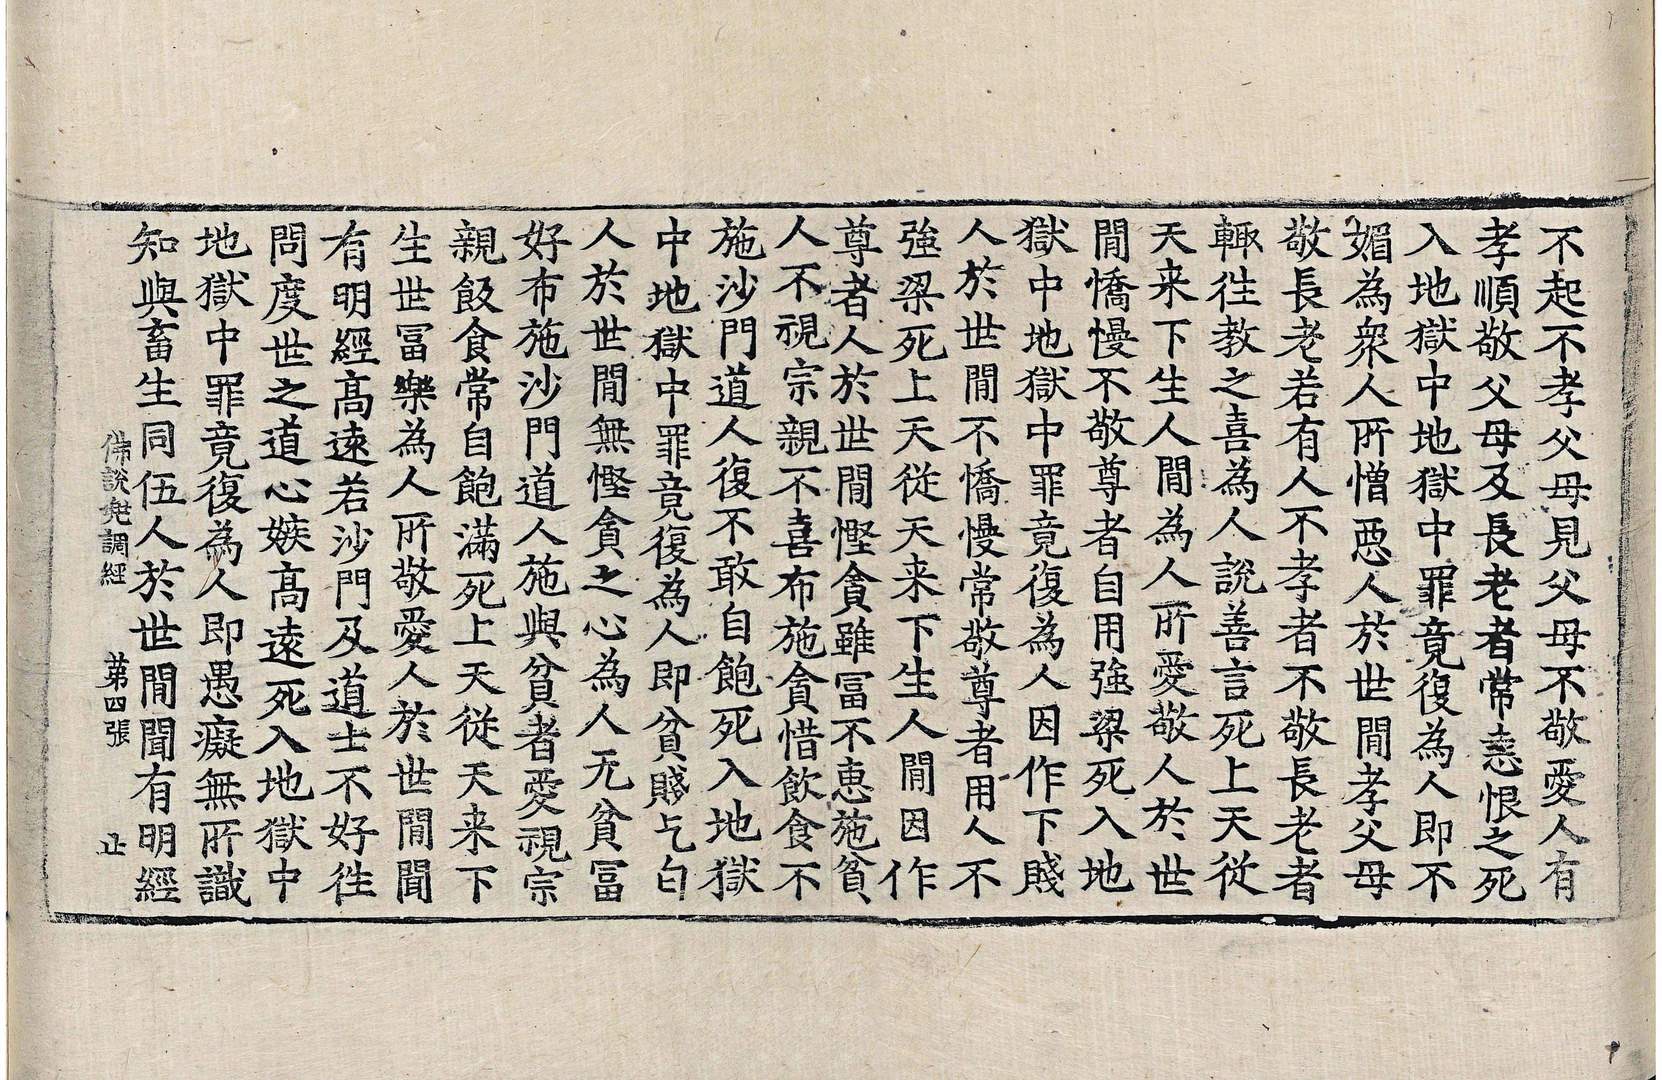 不起不孝父母見父母不敬愛人有
孝順敬父母及長老者常恚恨之死
入地獄中地獄中罪竟復為人即不
媚為衆人所憎惡人於世閒孝父母
敬長老若有人不孝者不敬長老者
輙往教之喜為人說善言死上天從
天来下生人閒為人所愛敬人於世
閒憍慢不敬尊者自用強梁死入地
獄中地獄中罪竟復為人因作下賤
人於世閒不憍慢常敬尊者用人不
強梁死上天從天来下生人閒因作
尊者人於世閒慳貪雖冨不惠施貧
人不視宗親不喜布施貪惜飲食不
施沙門道人復不敢自飽死入地獄
中地獄中罪竟復為人即貧賤乞匃
人於世閒無慳貪之心為人无貧冨
好布施沙門道人施與貧者愛視宗
親飯食常自飽滿死上天從天来下
生世冨樂為人所敬愛人於世閒聞
有明經髙遠若沙門及道士不好往
問度世之道心嫉髙遠死入地獄中
地獄中罪竟復為人即愚癡無所識
知與畜生同伍人於世閒聞有明經
佛說兜調經　第四張　止